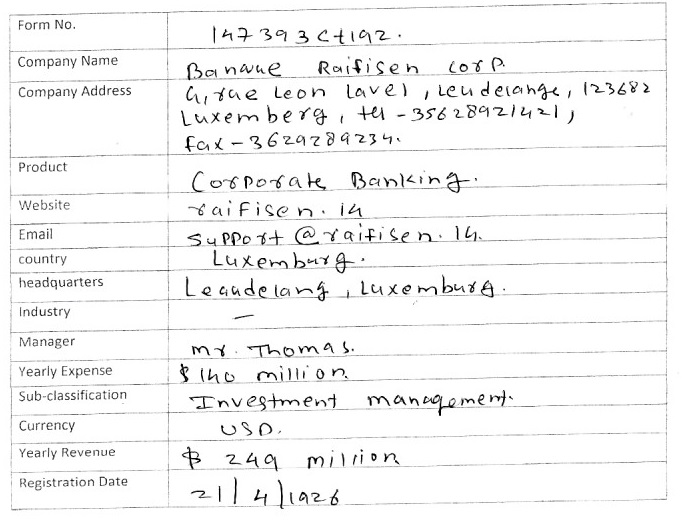 Form No. 147393Ct192.
Company Name Banque Raifisen Corp.
Company Address 4, rue Leon Lavel, Leudelange, 123682
Luxemberg, tel - 35628921421,
fax - 3629289234.
Product Corporate Banking.
Website raifisen.14
Email support@raifisen.14.
country Luxemburg.
headquarters Leaudelang, Luxemburg.
Industry —
Manager mr. Thomas.
Yearly Expense $ 140 million
Sub-classification Investment management.
Currency USD.
Yearly Revenue $ 249 million
Registration Date 21/4/1926